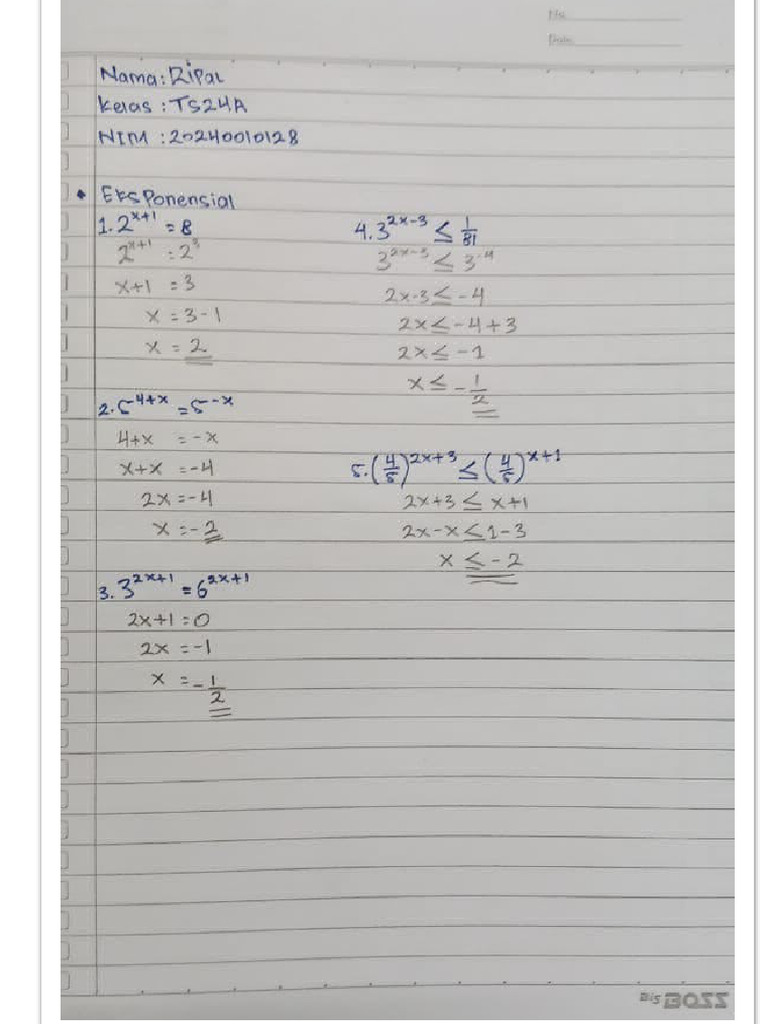 No.
Date.
Nama : Ripal
Kelas : TS24A
NIM : 20240010128
• Eksponensial
1. 2^{x+1} = 8
2^{x+1} = 2^3
x+1 = 3
x = 3-1
x = 2
2. 5^{4+x} = 5^{-x}
4+x = -x
x+x = -4
2x = -4
x = -2
3. 3^{2x+1} = 6^{2x+1}
2x+1 = 0
2x = -1
x = -1/2
4. 3^{2x-3} ≤ 1/81
3^{2x-3} ≤ 3^{-4}
2x-3 ≤ -4
2x ≤ -4+3
2x ≤ -1
x ≤ -1/2
5. (4/5)^{2x+3} ≤ (4/5)^{x+1}
2x+3 ≤ x+1
2x-x ≤ 1-3
x ≤ -2
Big BOSS